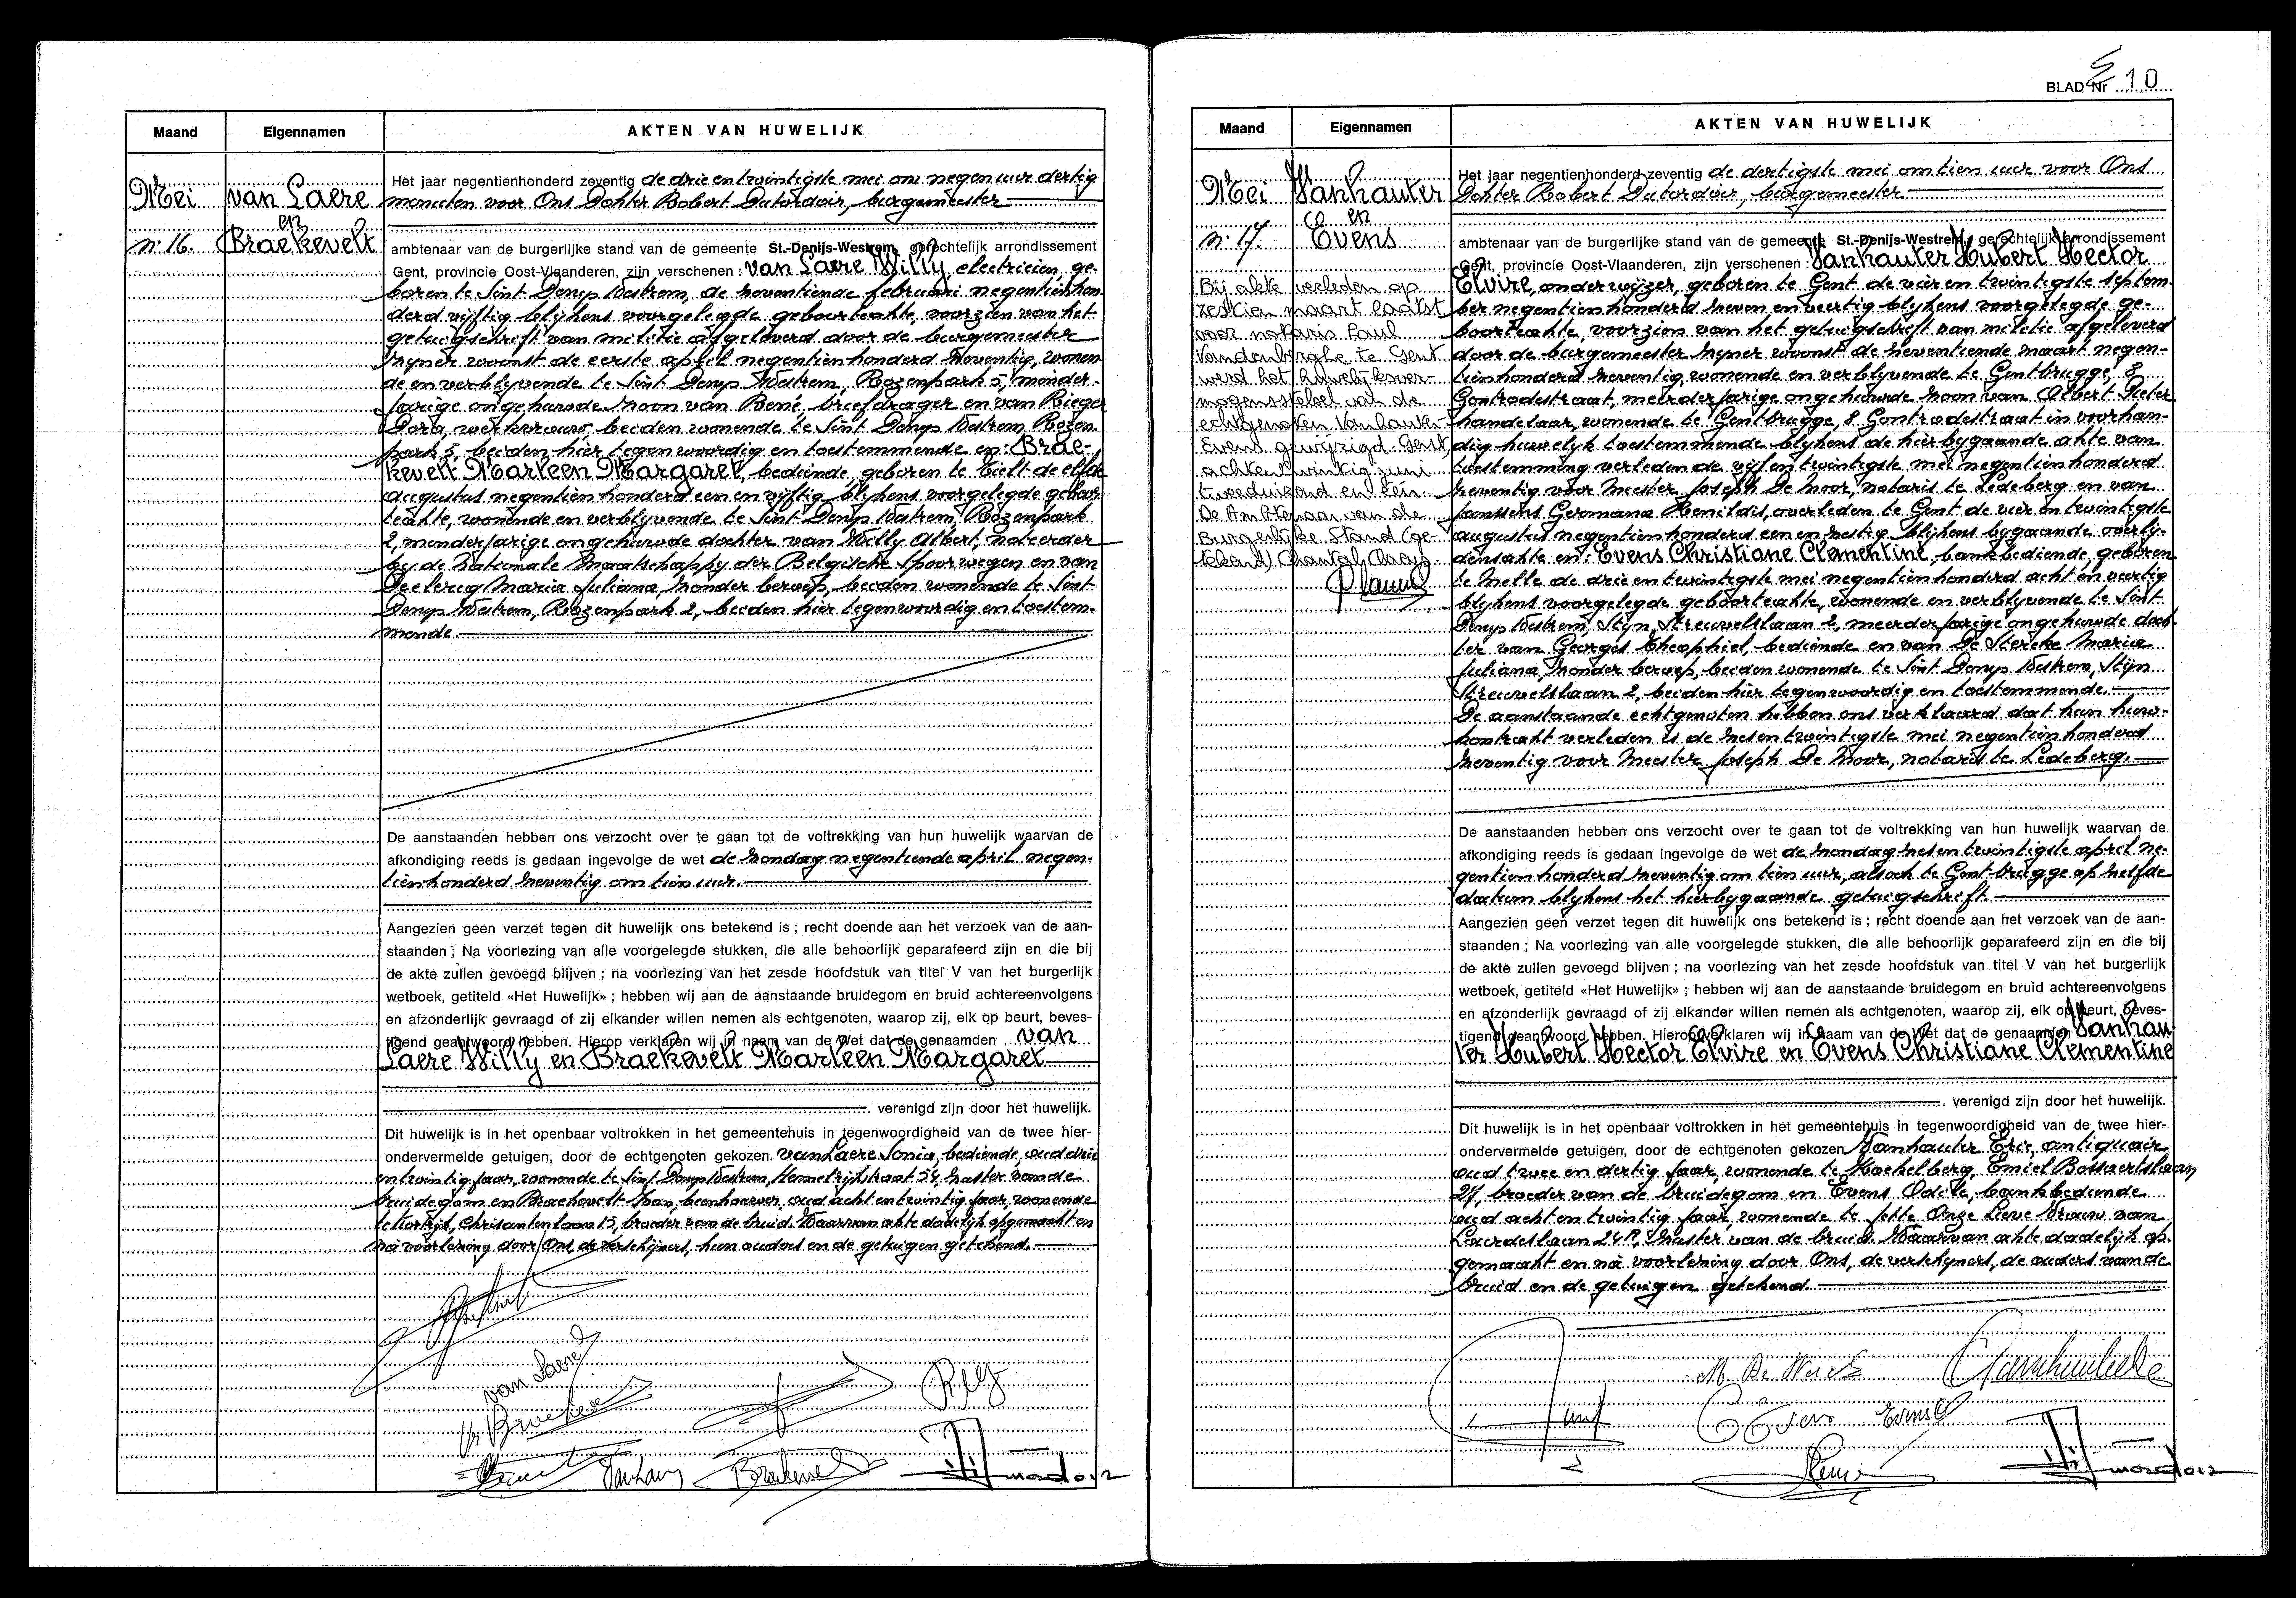 Maand Eigennamen AKTEN VAN HUWELIJK
Mei van Laere
en
n: 16. Braekevelt
Het jaar negentienhonderd zeventig de drie en twintigste mei om negen uur dertig
minuten voor Ons Dokter Robert Dutordoir, burgemeester
ambtenaar van de burgerlijke stand van de gemeente St.-Denijs-Westrem, gerechtelijk arrondissement
Gent, provincie Oost-Vlaanderen, zijn verschenen : van Laere Willy, electricien, ge-
boren te Sint Denys Westrem, de zeventiende februari negentienhon-
derd vijftig blijkens voorgelegde geboorteakte, voorzien van het
getuigschrift van militie afgeleverd door de burgemeester
zyner woonst de eerste april negentienhonderd zeventig, wonen-
de en verblyvende te Sint Denys Westrem, Rozenpark 5, minder-
jarige ongehuwde zoon van René, briefdrager en van Rieger
Dora, werkvrouw, beiden wonende te Sint Denys Westrem Rozen-
park 5, beiden hier tegenwoordig en toestemmende en: Brae-
kevelt Marleen Margaret, bediende, geboren te Tielt de elfde
augustus negentienhonderd een en vijftig blykens voorgelegde geboor-
teakte, wonende en verblyvende te Sint Denys Westrem, Rozenpark
2, minderjarige ongehuwde dochter van Willy Albert,
by de Nationale Maatschappy der Belgische Spoorwegen en van
Declercq Maria Juliana zonder beroep, beiden wonende te Sint
Denys Westrem, Rozenpark 2, beiden hier tegenwoordig en toestem-
mende.
De aanstaanden hebben ons verzocht over te gaan tot de voltrekking van hun huwelijk waarvan de
afkondiging reeds is gedaan ingevolge de wet de zondag negentiende april negen-
tienhonderd zeventig om tien uur.
Aangezien geen verzet tegen dit huwelijk ons betekend is ; recht doende aan het verzoek van de aan-
staanden ; Na voorlezing van alle voorgelegde stukken, die alle behoorlijk geparafeerd zijn en die bij
de akte zullen gevoegd blijven ; na voorlezing van het zesde hoofdstuk van titel V van het burgerlijk
wetboek, getiteld «Het Huwelijk» ; hebben wij aan de aanstaande bruidegom en bruid achtereenvolgens
en afzonderlijk gevraagd of zij elkander willen nemen als echtgenoten, waarop zij, elk op beurt, beves-
tigend geantwoord hebben. Hierop verklaren wij in naam van de Wet dat de genaamden van
Laere Willy en Braekevelt Marleen Margaret
verenigd zijn door het huwelijk.
Dit huwelijk is in het openbaar voltrokken in het gemeentehuis in tegenwoordigheid van de twee hier-
ondervermelde getuigen, door de echtgenoten gekozen. van Laere Sonia, bediende, oud drie
en twintig jaar, wonende te Sint Denys Westrem, Hemelrijkstraat 54, zuster van de
bruidegom en Braekevelt Ivan, beenhouwer, oud acht en twintig jaar, wonende
te Kortrijk, Chrisantenlaan 15, broeder van de bruid. Waarvan akte dadelijk opgemaakt en
na voorlezing door Ons, de verschijners, hun ouders en de getuigen getekend.
van Laere
BLAD Nr 10
Maand Eigennamen AKTEN VAN HUWELIJK
Mei Vanhauter
en
n: 17. Evens
Bij akte verleden op
zestien maart laatst
voor notaris Paul
Vandenberghe te Gent
werd het huwelijksver-
mogensstelsel van de
echtgenoten Vanhauter-
Evens gewijzigd. Gent
achtentwintig juni
tweeduizend en één.
De Ambtenaar van de
Burgerlijke Stand (ge-
tekend) Chantal Claeys
Het jaar negentienhonderd zeventig de dertigste mei om tien uur voor Ons
Dokter Robert Dutordoir, burgemeester
ambtenaar van de burgerlijke stand van de gemeente St.-Denijs-Westrem, gerechtelijk arrondissement
Gent, provincie Oost-Vlaanderen, zijn verschenen : Vanhauter Hubert Hector
Elvire, onderwijzer, geboren te Gent de vier en twintigste septem-
ber negentienhonderd zeven en veertig blijkens voorgelegde ge-
boorteakte, voorzien van het getuigschrift van militie afgeleverd
door de burgemeester zyner woonst de zeventiende maart negen-
tienhonderd zeventig, wonende en verblyvende te Gentbrugge, 8
Gontrodestraat, meerderjarige ongehuwde zoon van Albert Pieter
handelaar, wonende te Gentbrugge, 8 Gontrodestraat in voorhan-
dig huwelyk toestemmende blykens de hierbygaande akte van
toestemming verleden de vijf en twintigste mei negentienhonderd
zeventig voor Meester Joseph De Moor, notaris te Ledeberg en van
Janssens Germana Henildis, overleden te Gent de vier en twintigste
augustus negentienhonderd een en zestig blykens bygaande overly-
densakte en: Evens Christiane Clementine, bankbediende geboren
te Melle de drie en twintigste mei negentienhonderd acht en veertig
blykens voorgelegde geboorteakte, wonende en verblyvende te Sint
Denys Westrem, Styn Streuvelslaan 2, meerderjarige ongehuwde doch-
ter van Georges Theophiel, bediende en van De Stercke Maria
Juliana, zonder beroep, beiden wonende te Sint Denys Westrem, Stijn
Streuvelslaan 2, beiden hier tegenwoordig en toestemmende.
De aanstaande echtgenoten hebben ons verklaard dat hun huw-
kontrakt verleden is de zes en twintigste mei negentienhonderd
zeventig voor Meester Joseph De Moor, notaris te Ledeberg.
De aanstaanden hebben ons verzocht over te gaan tot de voltrekking van hun huwelijk waarvan de
afkondiging reeds is gedaan ingevolge de wet de zondag zes en twintigste april ne-
gentienhonderd zeventig om tien uur, alsook te Gentbrugge op zelfde
datum blykens het hierbygaande getuigschrift.
Aangezien geen verzet tegen dit huwelijk ons betekend is ; recht doende aan het verzoek van de aan-
staanden ; Na voorlezing van alle voorgelegde stukken, die alle behoorlijk geparafeerd zijn en die bij
de akte zullen gevoegd blijven ; na voorlezing van het zesde hoofdstuk van titel V van het burgerlijk
wetboek, getiteld «Het Huwelijk» ; hebben wij aan de aanstaande bruidegom en bruid achtereenvolgens
en afzonderlijk gevraagd of zij elkander willen nemen als echtgenoten, waarop zij, elk op beurt, beves-
tigend geantwoord hebben. Hierop verklaren wij in naam van de Wet dat de genaamden Vanhau
ter Hubert Hector Elvire en Evens Christiane Clementine
verenigd zijn door het huwelijk.
Dit huwelijk is in het openbaar voltrokken in het gemeentehuis in tegenwoordigheid van de twee hier-
ondervermelde getuigen, door de echtgenoten gekozen Vanhauter Eric, antiquair,
oud twee en dertig jaar, wonende te Koekelberg, Emiel Bossaertslaan
21, broeder van de bruidegom en Evens Odette, bankbediende
oud acht en twintig jaar, wonende te Jette Onze Lieve Vrouw van
Lourdeslaan, zuster van de bruid. Waarvan akte dadelijk op-
gemaakt en na voorlezing door Ons, de verschijners, de ouders van de
bruid en de getuigen getekend.
Evens